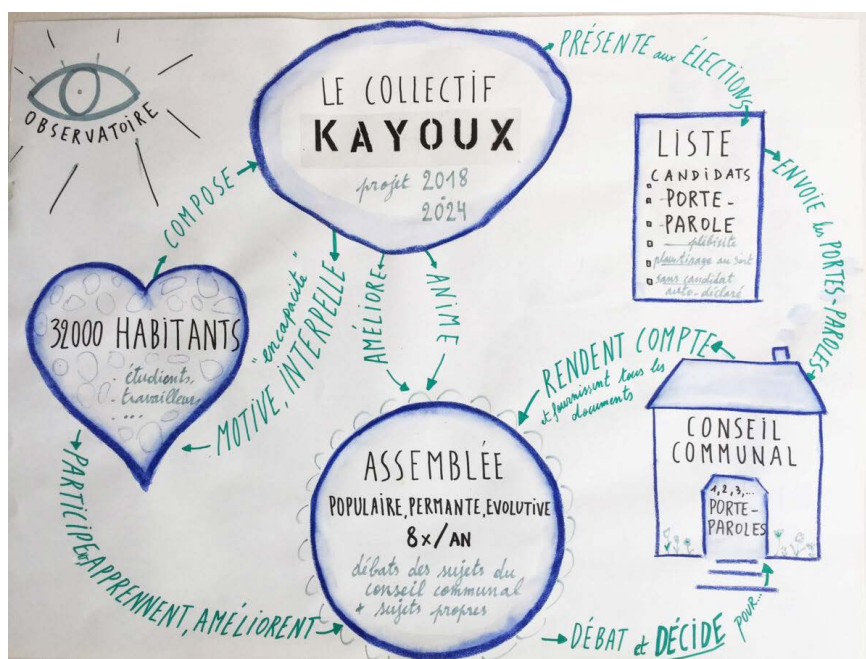 OBSERVATOIRE
LE COLLECTIF
KAYOUX
projet 2018
2024
PRÉSENTE aux ÉLECTIONS
LISTE
CANDIDATS
PORTE-
PAROLE
plébisite
plus tirage au sort
sans candidat
auto-déclaré
ENVOIE les PORTES-PAROLES
COMPOSE
32000 HABITANTS
. étudients,
. travailleurs,
. ...
"encapacité"
MOTIVE, INTERPELLE
AMÉLIORE
ANIME
RENDENT COMPTE
et fournissent tous les
documents
CONSEIL
COMMUNAL
1,2,3,...
PORTE-
PAROLES
ASSEMBLÉE
POPULAIRE, PERMANTE, EVOLUTIVE
8x/AN
débats des sujets du
conseil communal
+ sujets propres
PARTICIPENT, APPRENNENT, AMÉLIORENT
DÉBAT et DÉCIDE POUR...